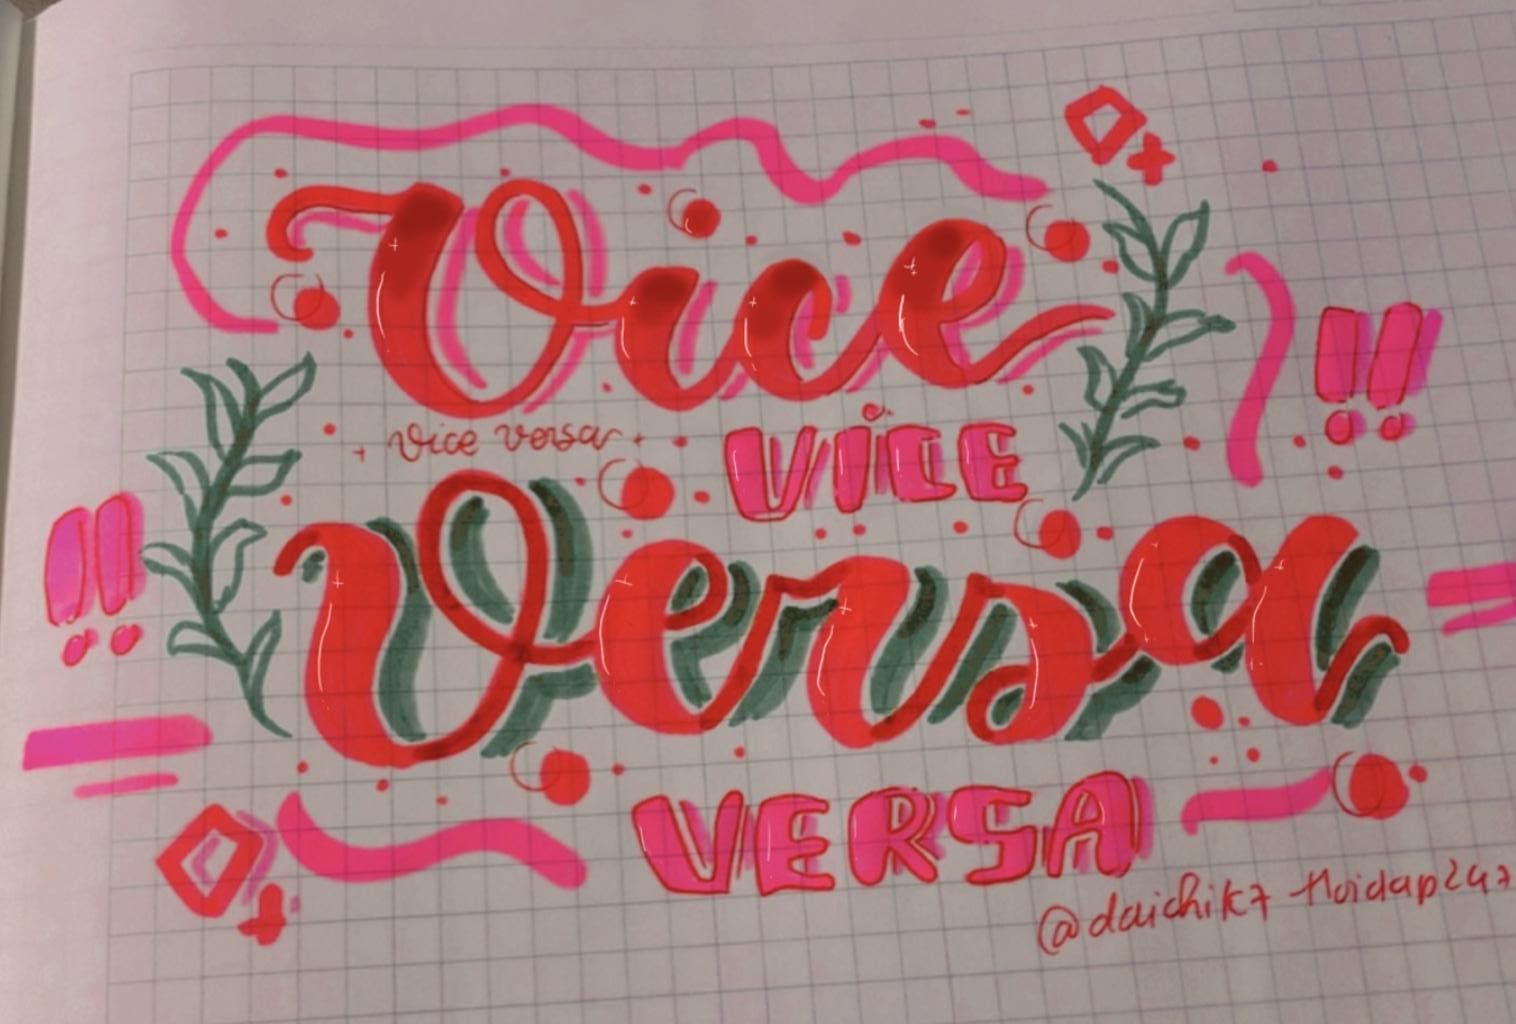 Vice
vice versa
VICE
Versa
VERSA
@daichik7 Hoidap247
!!
!!